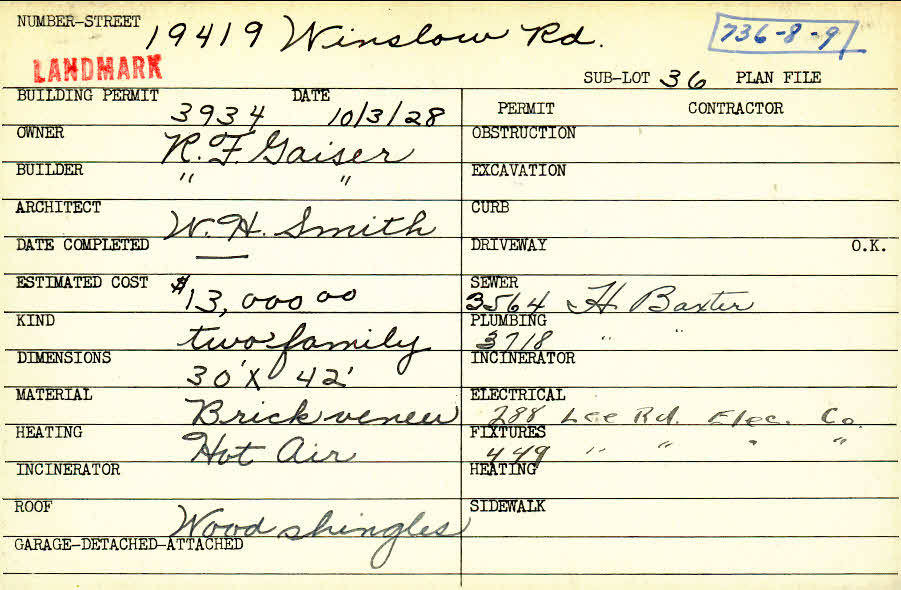 NUMBER-STREET 19419 Winslow Rd. 736-8-9
LANDMARK SUB-LOT 36 PLAN FILE
BUILDING PERMIT 3934 DATE 10/3/28
PERMIT CONTRACTOR
OWNER R.F. Gaiser
OBSTRUCTION
BUILDER " "
EXCAVATION
ARCHITECT W. H. Smith
CURB
DATE COMPLETED —
DRIVEWAY O.K.
ESTIMATED COST $13,000 00
SEWER 3564 H. Baxter
KIND two family
PLUMBING 3718 " "
DIMENSIONS 30' X 42'
INCINERATOR
MATERIAL Brick veneer
ELECTRICAL 288 Lee Rd. Elec. Co.
HEATING Hot Air
FIXTURES 449 " " " "
INCINERATOR
HEATING
ROOF Wood shingles
SIDEWALK
GARAGE-DETACHED-ATTACHED